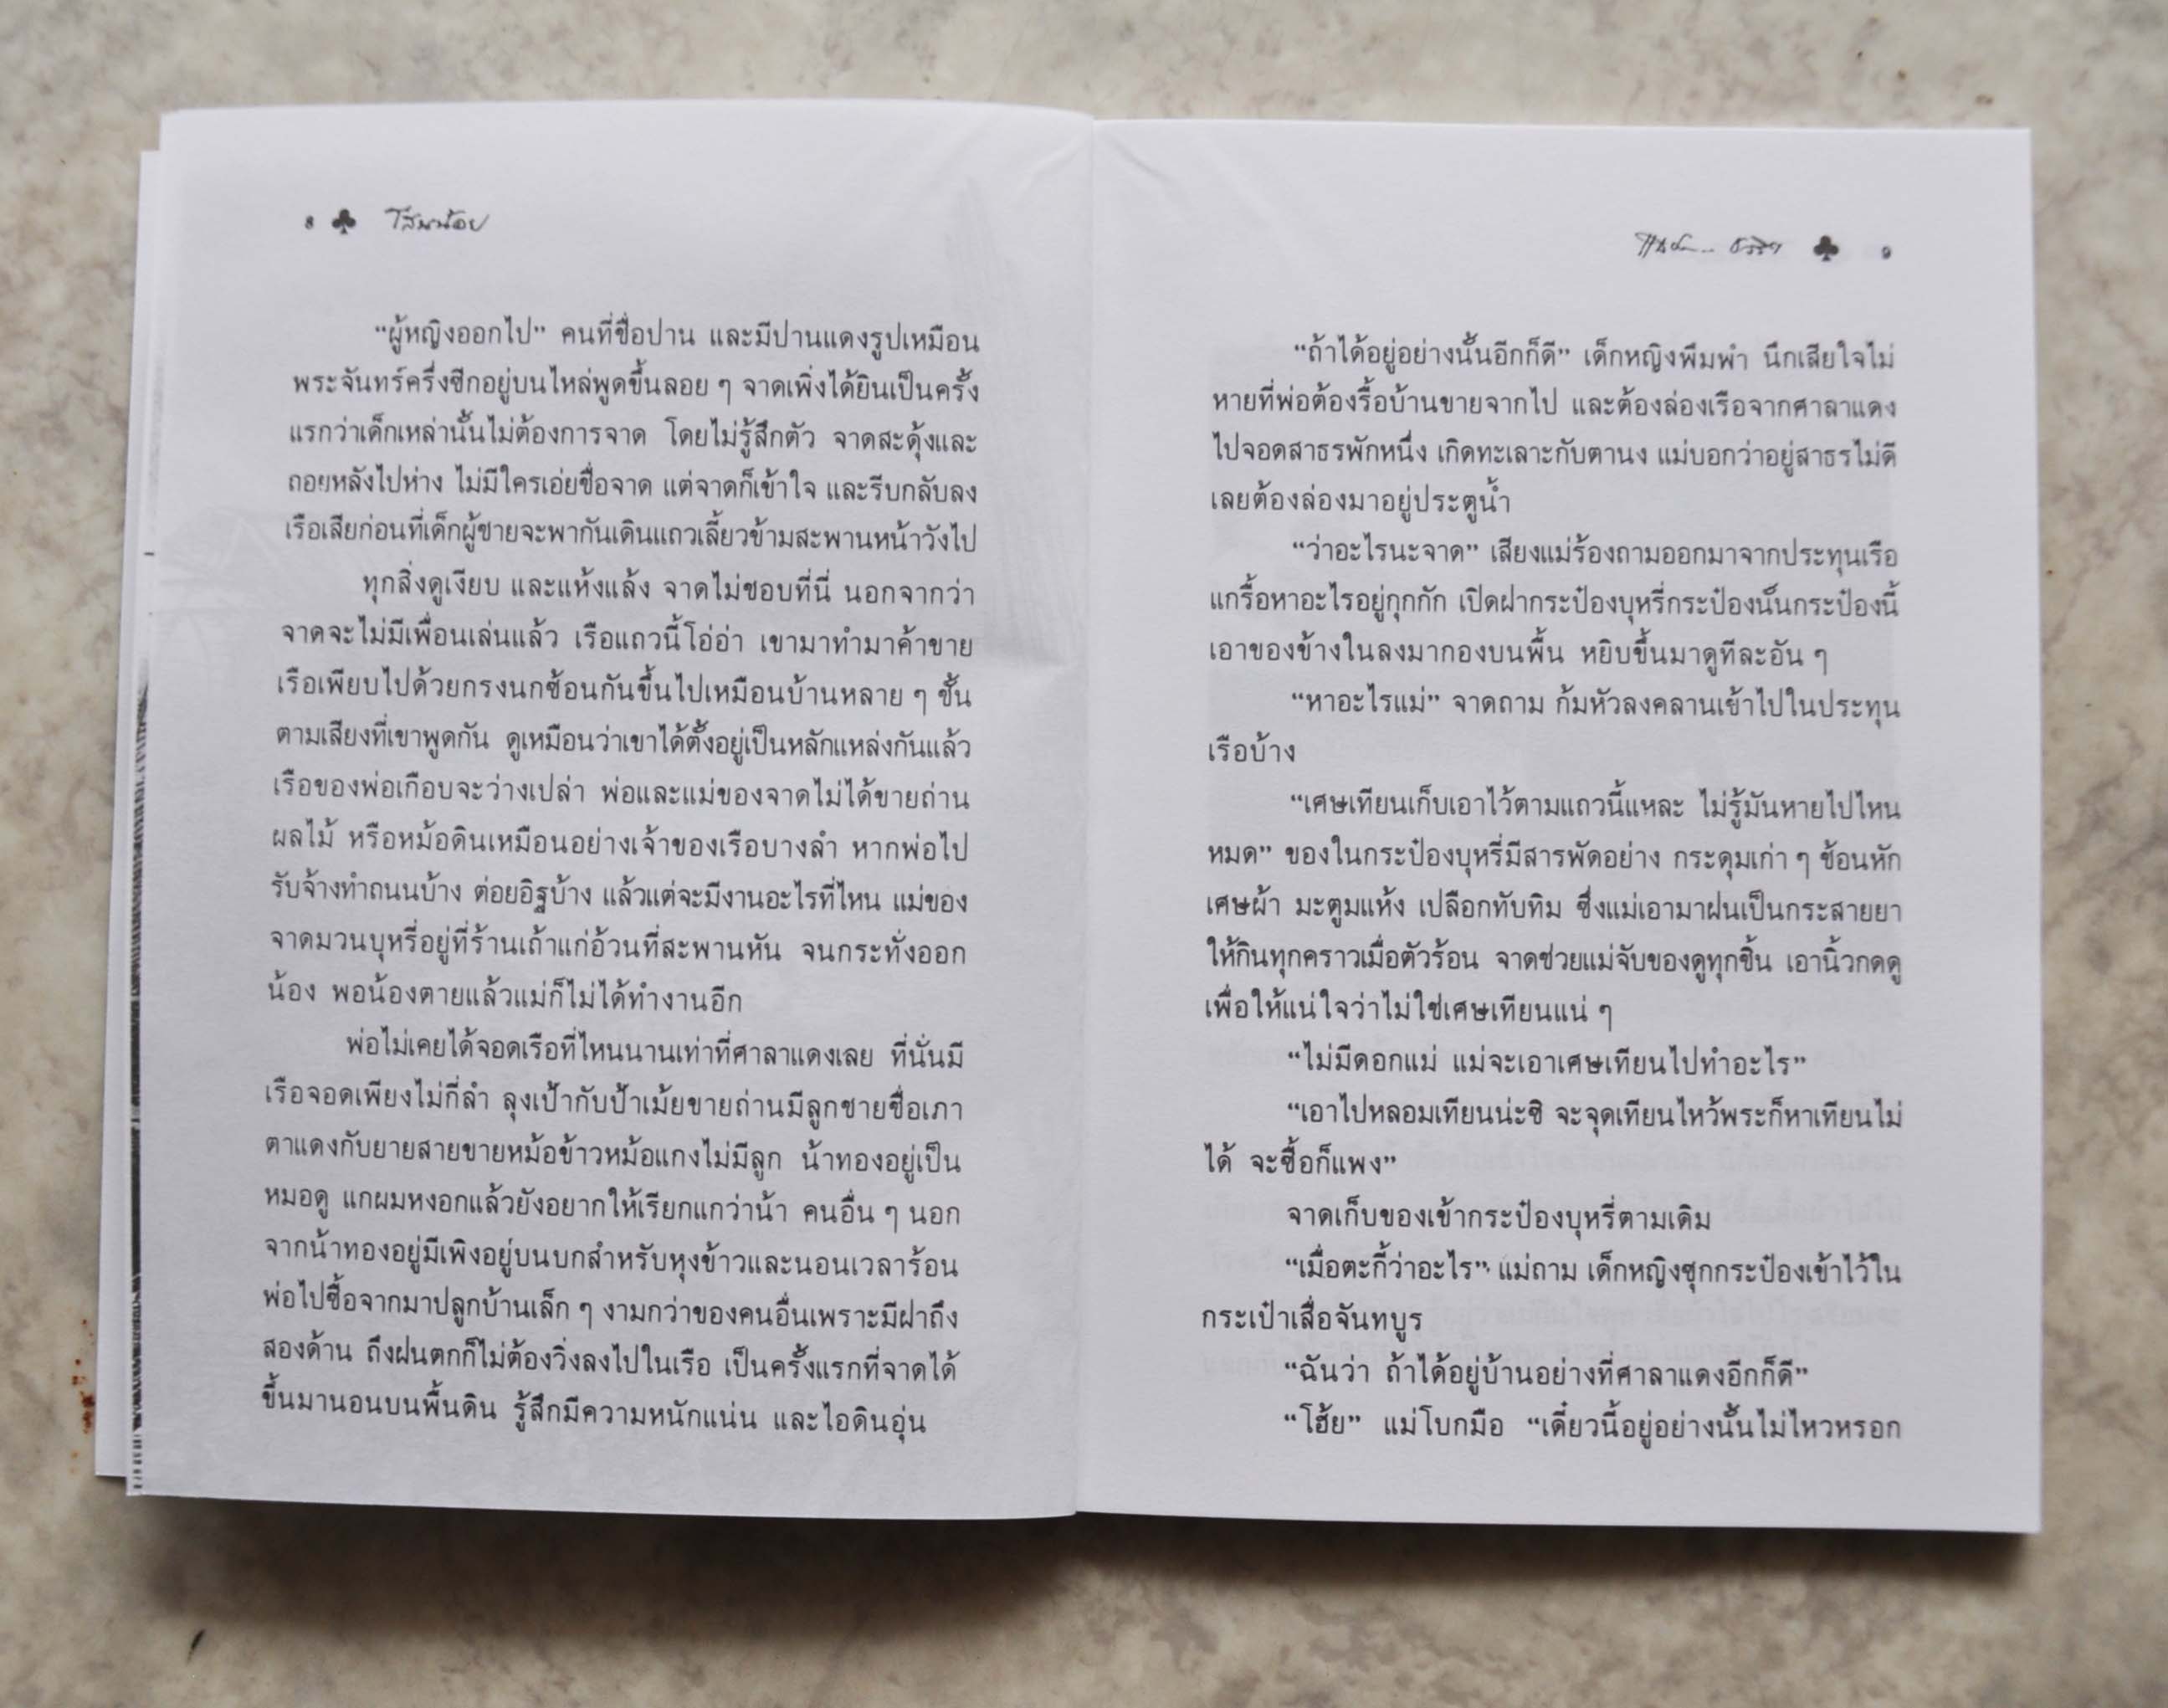 ๘ ♣ โสนน้อย
“ผู้หญิงออกไป” คนที่ชื่อปาน และมีปานแดงรูปเหมือน
พระจันทร์ครึ่งซีกอยู่บนไหล่พูดขึ้นลอย ๆ จาดเพิ่งได้ยินเป็นครั้ง
แรกว่าเด็กเหล่านั้นไม่ต้องการจาด โดยไม่รู้สึกตัว จาดสะดุ้งและ
ถอยหลังไปห่าง ไม่มีใครเอ่ยชื่อจาด แต่จาดก็เข้าใจ และรีบกลับลง
เรือเสียก่อนที่เด็กผู้ชายจะพากันเดินแถวเลี้ยวข้ามสะพานหน้าวังไป
ทุกสิ่งดูเงียบ และแห้งแล้ง จาดไม่ชอบที่นี่ นอกจากว่า
จาดจะไม่มีเพื่อนเล่นแล้ว เรือแถวนี้โอ่อ่า เขามาทำมาค้าขาย
เรือเพียบไปด้วยกรงนกซ้อนกันขึ้นไปเหมือนบ้านหลาย ๆ ชั้น
ตามเสียงที่เขาพูดกัน ดูเหมือนว่าเขาได้ตั้งอยู่เป็นหลักแหล่งกันแล้ว
เรือของพ่อเกือบจะว่างเปล่า พ่อและแม่ของจาดไม่ได้ขายถ่าน
ผลไม้ หรือหม้อดินเหมือนอย่างเจ้าของเรือบางลำ หากพ่อไป
รับจ้างทำถนนบ้าง ต่อยอิฐบ้าง แล้วแต่จะมีงานอะไรที่ไหน แม่ของ
จาดมวนบุหรี่อยู่ที่ร้านเถ้าแก่อ้วนที่สะพานหัน จนกระทั่งออก
น้อง พอน้องตายแล้วแม่ก็ไม่ได้ทำงานอีก
พ่อไม่เคยได้จอดเรือที่ไหนนานเท่าที่ศาลาแดงเลย ที่นั่นมี
เรือจอดเพียงไม่กี่ลำ ลุงเป้ากับป้าเม้ยขายถ่านมีลูกชายชื่อเภา
ตาแดงกับยายสายขายหม้อข้าวหม้อแกงไม่มีลูก น้าทองอยู่เป็น
หมอดู แกผมหงอกแล้วยังอยากให้เรียกแกว่าน้า คนอื่น ๆ นอก
จากน้าทองอยู่มีเพิงอยู่บนบกสำหรับหุงข้าวและนอนเวลาร้อน
พ่อไปซื้อจากมาปลูกบ้านเล็ก ๆ งามกว่าของคนอื่นเพราะมีฝาถึง
สองด้าน ถึงฝนตกก็ไม่ต้องวิ่งลงไปในเรือ เป็นครั้งแรกที่จาดได้
ขึ้นมานอนบนพื้นดิน รู้สึกมีความหนักแน่น และไอดินอุ่น
♣ ๙
“ถ้าได้อยู่อย่างนั้นอีกก็ดี” เด็กหญิงพึมพำ นึกเสียใจไม่
หายที่พ่อต้องรื้อบ้านขายจากไป และต้องล่องเรือจากศาลาแดง
ไปจอดสาธรพักหนึ่ง เกิดทะเลาะกับตานง แม่บอกว่าอยู่สาธรไม่ดี
เลยต้องล่องมาอยู่ประตูน้ำ
“ว่าอะไรนะจาด” เสียงแม่ร้องถามออกมาจากประทุนเรือ
แกรื้อหาอะไรอยู่กุกกัก เปิดฝากระป๋องบุหรี่กระป๋องนั้นกระป๋องนี้
เอาของข้างในลงมากองบนพื้น หยิบขึ้นมาดูทีละอัน ๆ
“หาอะไรแม่” จาดถาม ก้มหัวลงคลานเข้าไปในประทุน
เรือบ้าง
“เศษเทียนเก็บเอาไว้ตามแถวนี้แหละ ไม่รู้มันหายไปไหน
หมด” ของในกระป๋องบุหรี่มีสารพัดอย่าง กระดุมเก่า ๆ ช้อนหัก
เศษผ้า มะตูมแห้ง เปลือกทับทิม ซึ่งแม่เอามาฝนเป็นกระสายยา
ให้กินทุกคราวเมื่อตัวร้อน จาดช่วยแม่จับของดูทุกชิ้น เอานิ้วกดดู
เพื่อให้แน่ใจว่าไม่ใช่เศษเทียนแน่ ๆ
“ไม่มีดอกแม่ แม่จะเอาเศษเทียนไปทำอะไร”
“เอาไปหลอมเทียนน่ะซิ จะจุดเทียนไหว้พระก็หาเทียนไม่
ได้ จะซื้อก็แพง”
จาดเก็บของเข้ากระป๋องบุหรี่ตามเดิม
“เมื่อตะกี้ว่าอะไร” แม่ถาม เด็กหญิงซุกกระป๋องเข้าไว้ใน
กระเป๋าเสื่อจันทบูร
“ฉันว่า ถ้าได้อยู่บ้านอย่างที่ศาลาแดงอีกก็ดี”
“โฮ้ย” แม่โบกมือ “เดี๋ยวนี้อยู่อย่างนั้นไม่ไหวหรอก